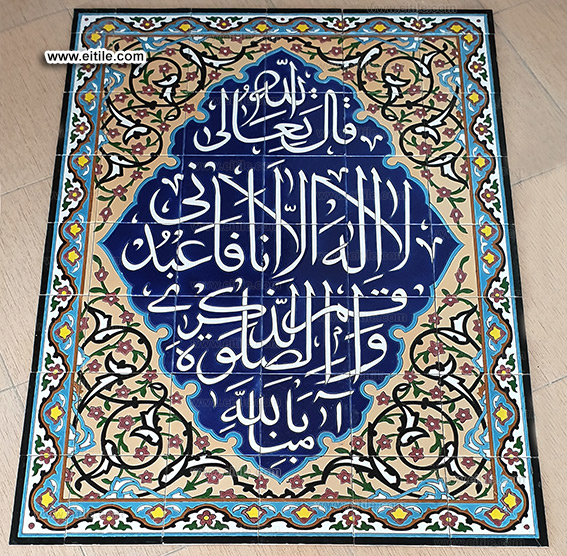 www.eitile.com
قال الله تعالى
لا اله الا انا فاعبدنى
واقم الصلوة لذكرى
آمنا بالله